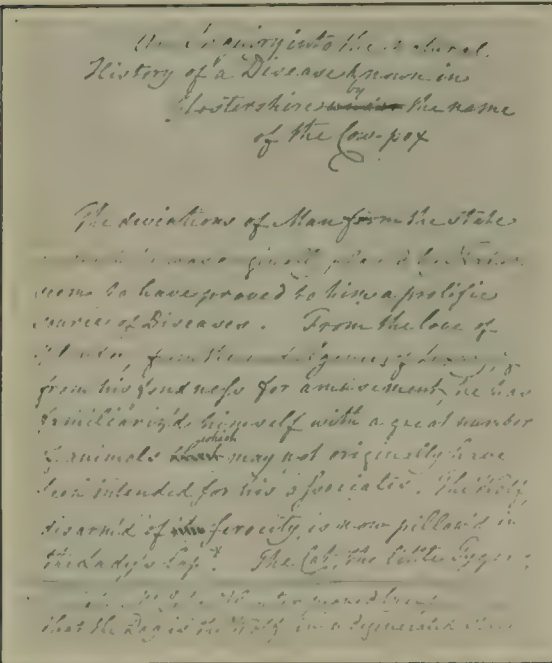 An Inquiry into the natural
History of a Disease known in
Glostershire by the name
of the Cow-pox
The deviations of Man from the state
in which he was originally placed by Nature
seem to have proved to him a prolific
source of Diseases. From the love of
splendor, from the indulgences of luxury, &
from his fondness for amusement, he has
familiariz'd himself with a great number
of animals which may not originally have
been intended for his associates. The Wolf
disarm'd of ferocity is now pillow'd in
the Lady's Lap*. The Cat, the little Tyger
that the Dog is the Wolf in a degenerated